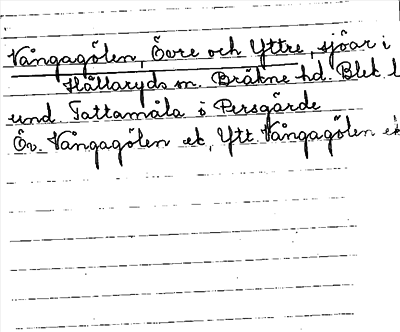 Vångagölen, Övre och Yttre, sjöar i
Hällaryds sn. Bräkne hd. Blek. l
und. Tattamåla o Persgärde
Öv. Vångagölen ek, Ytt. Vångagölen ek